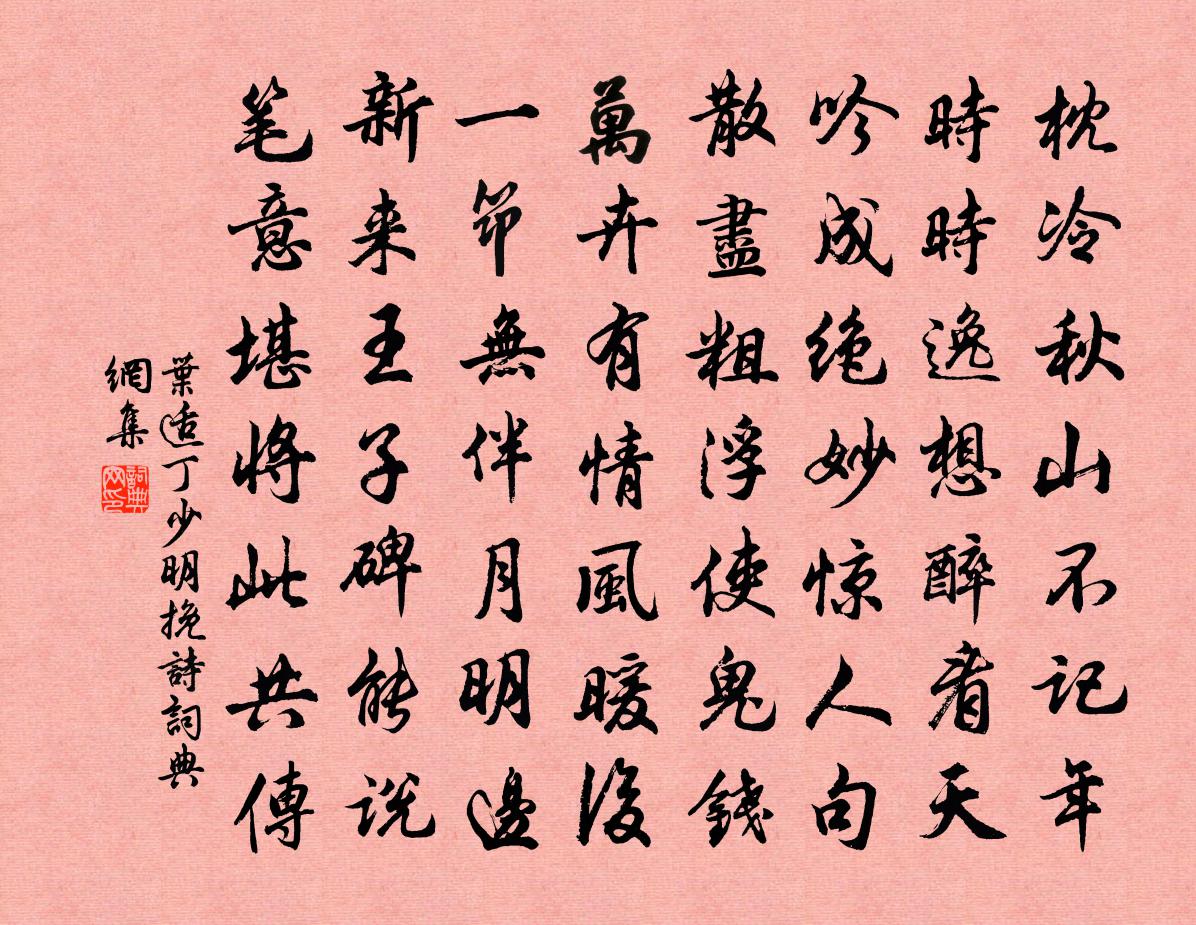 枕冷秋山不记年
時時逸想醉看天
吟成绝妙惊人句
散盡粗浮使鬼錢
萬卉有情風暖後
一筇無伴月明邊
新来王子碑能说
笔意堪将此共傳
葉适丁少明挽詩詞典
網集
詞典
网印